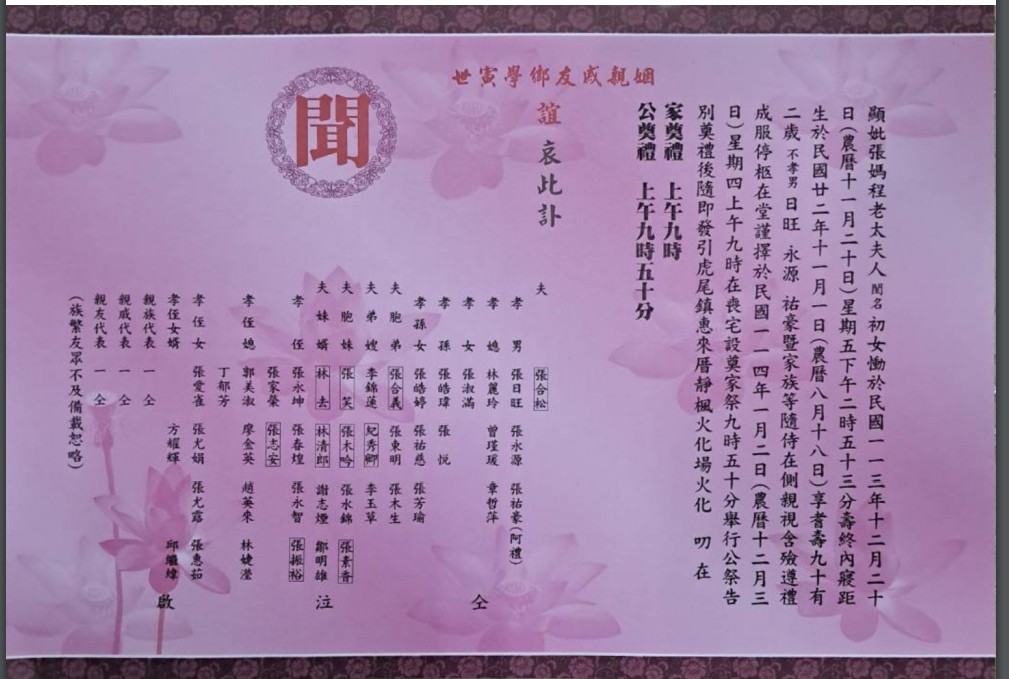 顯妣張媽程老太夫人 閨名 初女慟於民國一一三年十二月二十
日(農曆十一月二十日)星期五下午二時五十三分壽終內寢距
生於民國廿二年十一月一日(農曆八月十八日)享耆壽九十有
二歲 不孝男 日旺 永源 祐豪暨家族等隨侍在側親視含殮遵禮
成服停柩在堂謹擇於民國一一四年一月二日(農曆十二月三
日)星期四上午九時在喪宅設奠家祭九時五十分舉行公祭告
別奠禮後隨即發引虎尾鎮惠來厝靜楓火化場火化 叨 在
家奠禮 上午九時
公奠禮 上午九時五十分
姻親戚友鄉學寅世
誼 哀此訃
聞
夫 張合松
孝男 張日旺 張永源 張祐豪(阿禮)
孝媳 林麗玲 曾瑾瑗 章哲萍
孝女 張淑滿
孝孫 張皓瑋 張悅
孝孫女 張皓婷 張祐慈 張芳瑜
夫胞弟 張合義 張東明 張木生
夫弟嫂 李錦蓮 紀秀卿 李玉草
夫胞妹 張笑 張木吟 張水錦 張素香
夫妹婿 林去 林清郎 謝志煙 鄒明雄
孝侄 張永坤 張春煌 張永智 張振裕
張家榮 張志安
孝侄媳 郭美淑 廖金英 趙英來 林婕瀅
丁郁芳
孝侄女 張愛雀 張尤娟 張尤露 張惠茹
孝侄女婿 方耀輝 邱繼緯
親族代表 一 仝
親戚代表 一 仝
親友代表 一 仝
(族繁友眾不及備載恕略)
仝 泣 啟